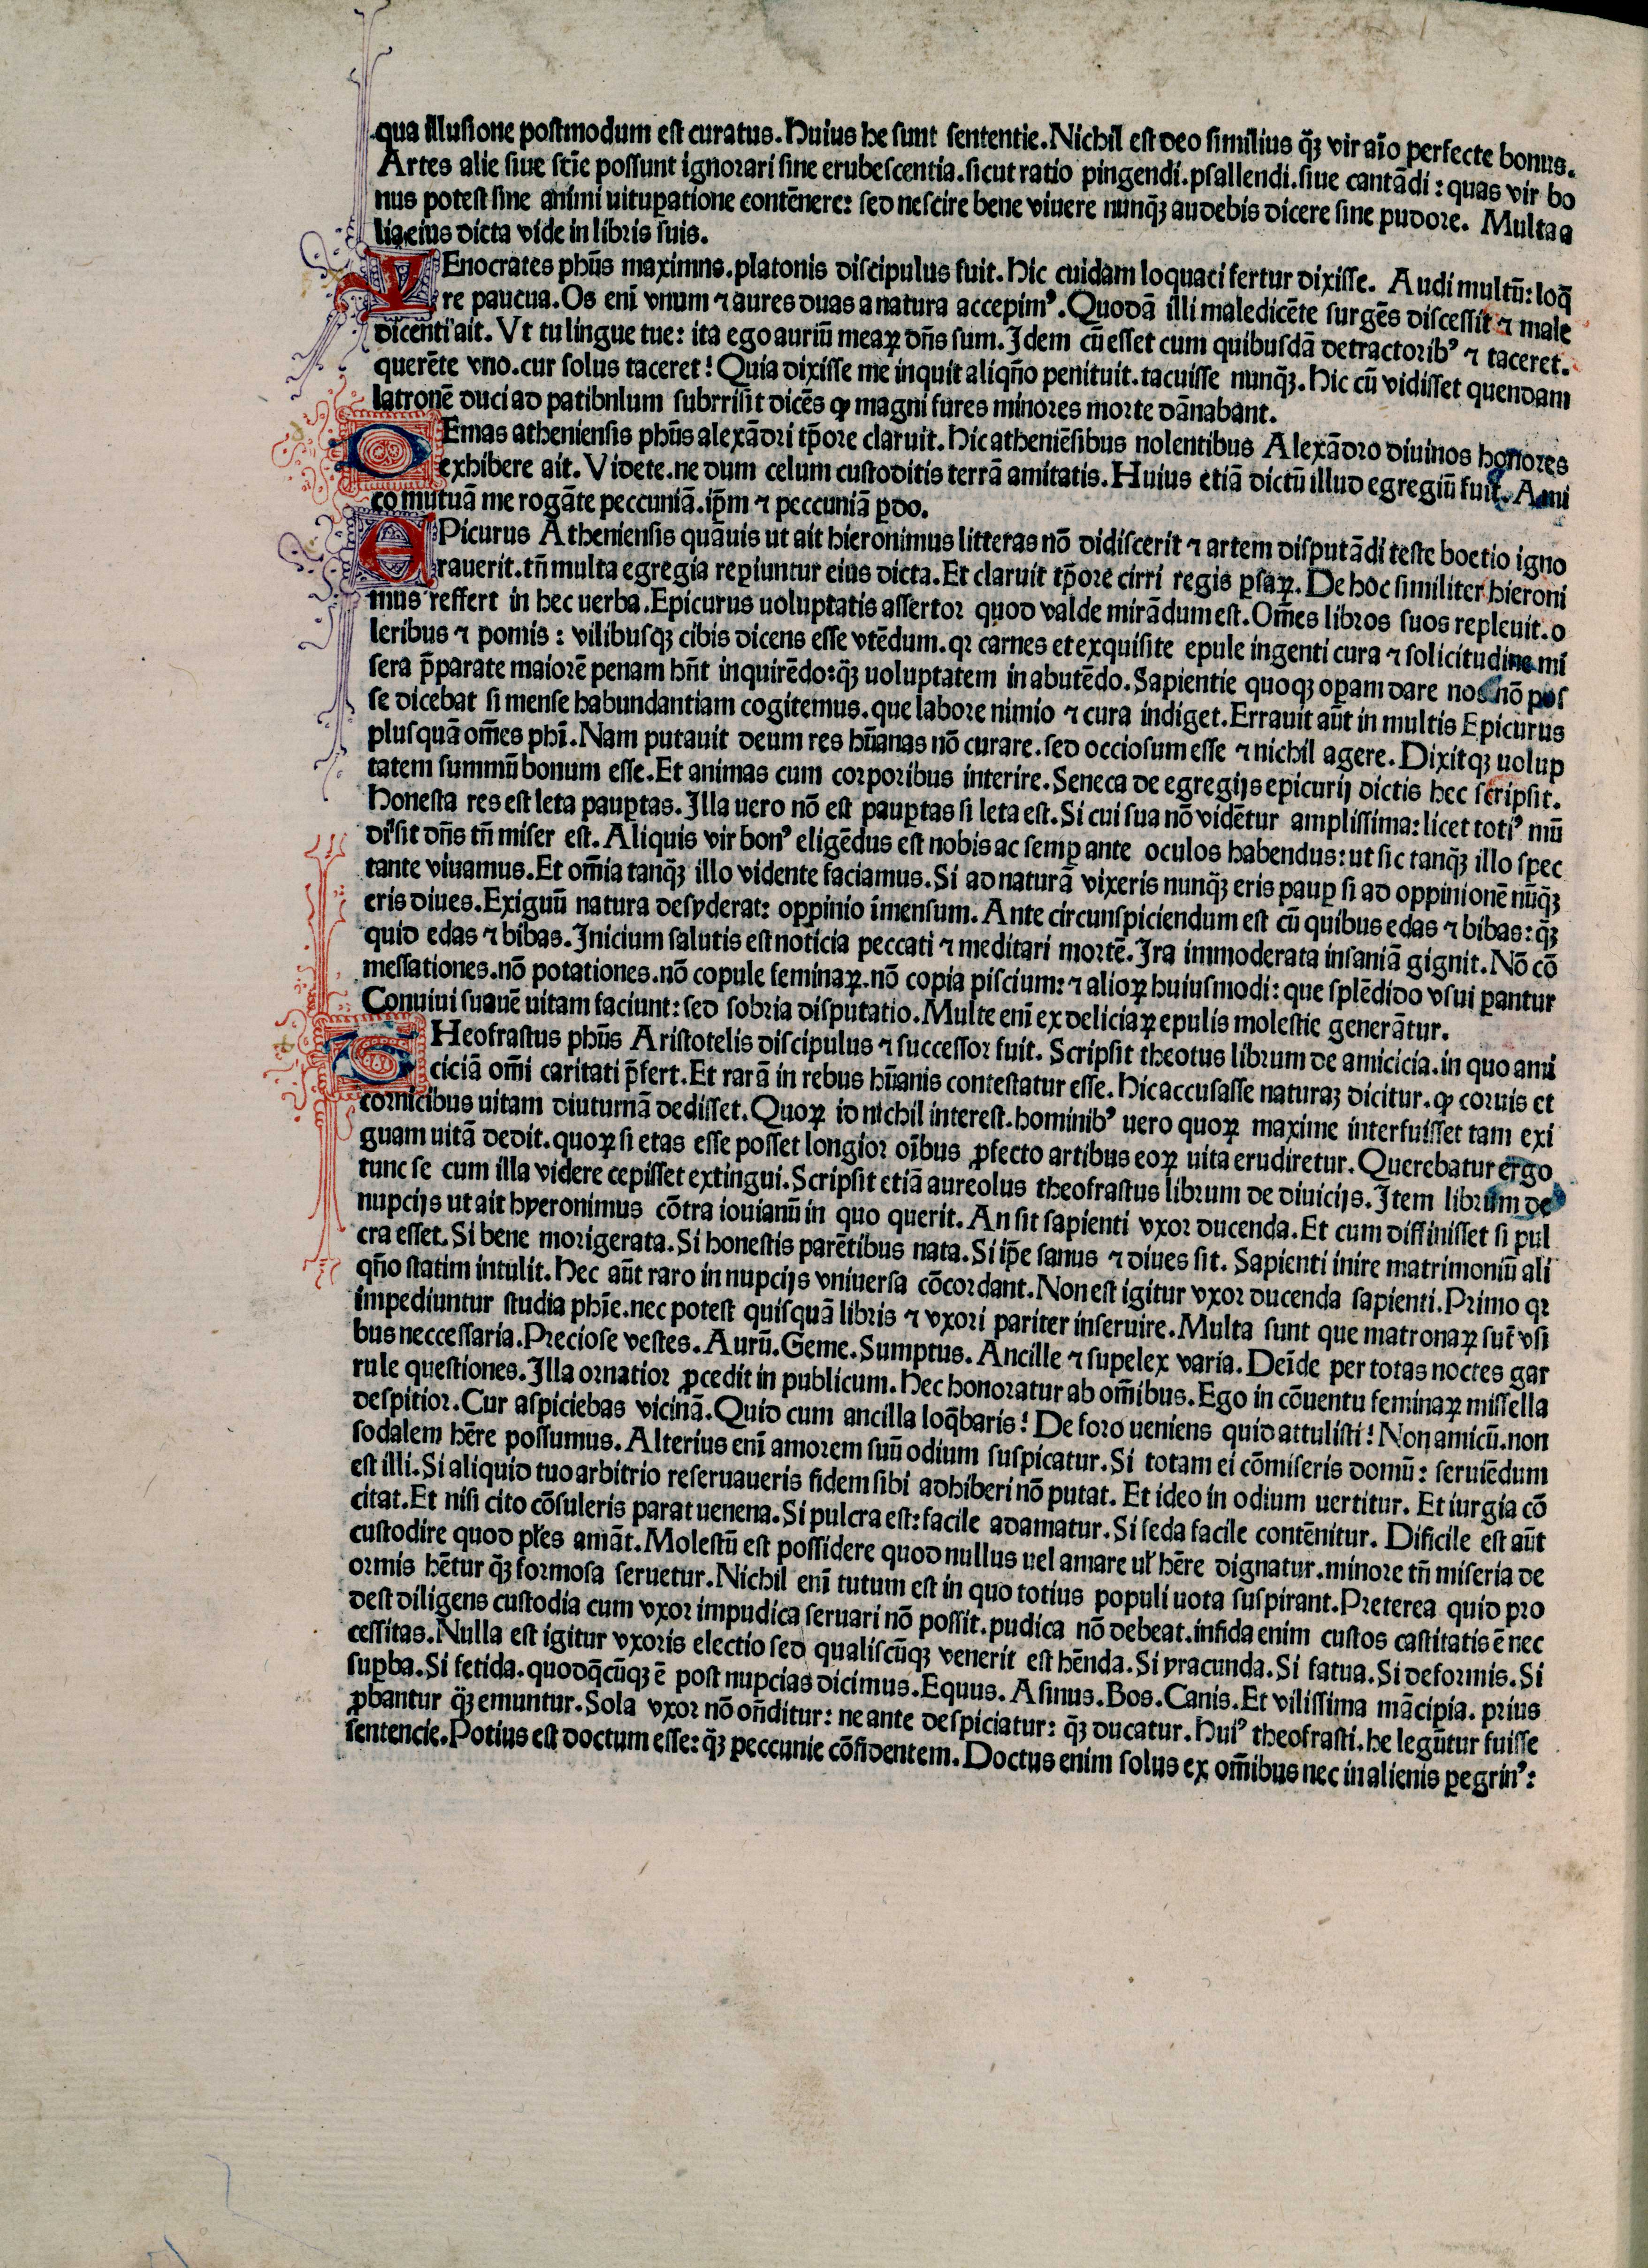 qua illusione postmodum est curatus. Huius he sunt sententie. Nichil est deo similius qꝫ̃ vir aı̃o perfecte bonus.
Artes alie siue scı̃e possunt ignorari sine erubescentia. sicut ratio pingendi. psallendi. siue cantãdi : quas vir bo
nus potest sine animi uituꝑatione contẽnere: sed nescire bene viuere nunqꝫ̃ audebis dicere sine pudore. Multa a
lia eius dicta vide in libris suis.
XEnocrates phũs maximns. platonis discipulus fuit. Hic cuidam loquaci fertur dixisse. Audi multũ: loq̃
re paucua. Os enı̃ vnum ⁊ aures duas a natura accepimꝰ. Quodã illi maledicẽte surgẽs discessit ⁊ male
dicenti ait. Vt tu lingue tue: ita ego auriũ meaꝝ dñs sum. Idem cũ esset cum quibusdã detractoribꝰ ⁊ taceret.
querẽte vno. cur solus taceret? Quia dixisse me inquit aliqño penituit. tacuisse nunqꝫ̃. Hic cũ vidisset quendam
latronẽ duci ad patibnlum subrrisit dicẽs ꝙ magni fures minores morte dãnabant.
DEmas atheniensis phũs alexãdri tꝑ̃ore claruit. Hic atheniẽsibus nolentibus Alexãdro diuinos honores
exhibere ait. Videte. ne dum celum custoditis terrã amitatis. Huius etiã dictũ illud egregiũ fuit. Ami
co mutuã me rogãte peccuniã. ip̃m ⁊ peccuniã ꝑdo.
EPicurus Atheniensis quãuis ut ait hieronimus litteras nõ didiscerit ⁊ artem disputãdi teste boetio igno
rauerit. tñ multa egregia reꝑiuntur eius dicta. Et claruit tp̃ore cirri regis ꝑsaꝝ. De hoc similiter hieroni
mus reffert in hec uerba. Epicurus uoluptatis assertor quod valde mirãdum est. Om̃es libros suos repleuit. o
leribus ⁊ pomis : vilibusqꝫ cibis dicens esse vtẽdum. qꝛ carnes et exquisite epule ingenti cura ⁊ solicitudine mi
sera p̃parate maiorẽ penam hñt inquirẽdo: qꝫ̃ uoluptatem in abutẽdo. Sapientie quoqꝫ oꝑam dare nos nõ pos
se dicebat si mense habundantiam cogitemus. que labore nimio ⁊ cura indiget. Errauit aũt in multis Epicurus
plus quã om̃es phı̃. Nam putauit deum res hũanas nõ curare. sed occiosum esse ⁊ nichil agere. Dixitqꝫ uolup
tatem summũ bonum esse. Et animas cum corporibus interire. Seneca de egregijs epicurij dictis hec scripsit.
Honesta res est leta pauꝑtas. Illa uero nõ est pauꝑtas si leta est. Si cui sua nõ vidẽtur amplissima: licet totiꝰ mũ
di sit dñs tñ miser est. Aliquis vir bonꝰ eligẽdus est nobis ac semꝑ ante oculos habendus: ut sic tanqꝫ̃ illo spec
tante viuamus. Et om̃ia tanqꝫ̃ illo vidente faciamus. Si ad naturã vixeris nunqꝫ̃ eris pauꝑ si ad oppinionẽ nũqꝫ̃
eris diues. Exiguũ natura desyderat: oppinio ı̃mensum. Ante circunspiciendum est cũ quibus edas ⁊ bibas: qꝫ̃
quid edas ⁊ bibas. Inicium salutis est noticia peccati ⁊ meditari mortẽ. Ira immoderata insaniã gignit. Nõ cõ
messationes. nõ potationes. nõ copule feminaꝝ. nõ copia piscium: ⁊ alioꝝ huiusmodi: que splẽdido vsui ꝑantur
Conuiui suauẽ uitam faciunt: sed sobria disputatio. Multe enı̃ ex deliciaꝝ epulis molestie generãtur.
THeofrastus phũs Aristotelis discipulus ⁊ successor fuit. Scripsit theotus librum de amicicia. in quo ami
ciciã om̃i caritati p̃fert. Et rarã in rebus hũanis contestatur esse. Hic accusasse naturaꝫ dicitur. ꝙ coruis et
cornicibus uitam diuturnã dedisset. Quoꝝ id nichil interest. hominibꝰ uero quoꝝ maxime interfuisset tam exi
guam uitã dedit. quoꝝ si etas esse posset longior oı̃bus ꝓfecto artibus eoꝝ uita erudiretur. Querebatur ergo
tunc se cum illa videre cepisset extingui. Scripsit etiã aureolus theofrastus librum de diuicijs. Item librum de
nupcijs ut ait hyeronimus cõtra iouianũ in quo querit. An sit sapienti vxor ducenda. Et cum diffinisset si pul
cra esset. Si bene morigerata. Si honestis parẽtibus nata. Si ip̃e sanus ⁊ diues sit. Sapienti inire matrimoniũ ali
qño statim intulit. Hec aũt raro in nupcijs vniuersa cõcordant. Non est igitur vxor ducenda sapienti. Primo qꝛ
impediuntur studia phı̃e. nec potest quisquã libris ⁊ vxori pariter inseruire. Multa sunt que matronaꝝ sũt vsi
bus neccessaria. Preciose vestes. Aurũ. Geme. Sumptus. Ancille ⁊ supelex varia. Deı̃de per totas noctes gar
rule questiones. Illa ornatior ꝓcedit in publicum. Hec honoratur ab om̃ibus. Ego in cõuentu feminaꝝ missella
despitior. Cur aspiciebas vicinã. Quid cum ancilla loq̃baris? De foro ueniens quid attulisti? Non amicũ. non
sodalem hẽre possumus. Alterius enı̃ amorem suũ odium suspicatur. Si totam ei cõmiseris domũ: seruiẽdum
est illi. Si aliquid tuo arbitrio reseruaueris fidem sibi adhiberi nõ putat. Et ideo in odium uertitur. Et iurgia cõ
citat. Et nisi cito cõsuleris parat uenena. Si pulcra est: facile adamatur. Si feda facile contẽnitur. Dificile est aũt
custodire quod pl̃es amãt. Molestũ est possidere quod nullus uel amare ul̃ hẽre dignatur. minore tñ miseria de
ormis hẽtur qꝫ̃ formosa seruetur. Nichil enı̃ tutum est in quo totius populi uota suspirant. Preterea quid pro
dest diligens custodia cum vxor impudica seruari nõ possit. pudica nõ debeat. infida enim custos castitatis ẽ nec
cessitas. Nulla est igitur vxoris electio sed qualiscũqꝫ venerit est hẽnda. Si yracunda. Si fatua. Si deformis. Si
suꝑba. Si fetida. quodq̃cũqꝫ ẽ post nupcias dicimus. Equus. Asinus. Bos. Canis. Et vilissima mãcipia. prius
ꝓbantur qꝫ̃ emuntur. Sola vxor nõ oñditur: ne ante despiciatur: qꝫ̃ ducatur. Huiꝰ theofrasti. he legũtur fuisse
sentencie. Potius est doctum esse: qꝫ̃ peccunie cõfidentem. Doctus enim solus ex om̃ibus nec in alienis ꝑegrinꝰ: